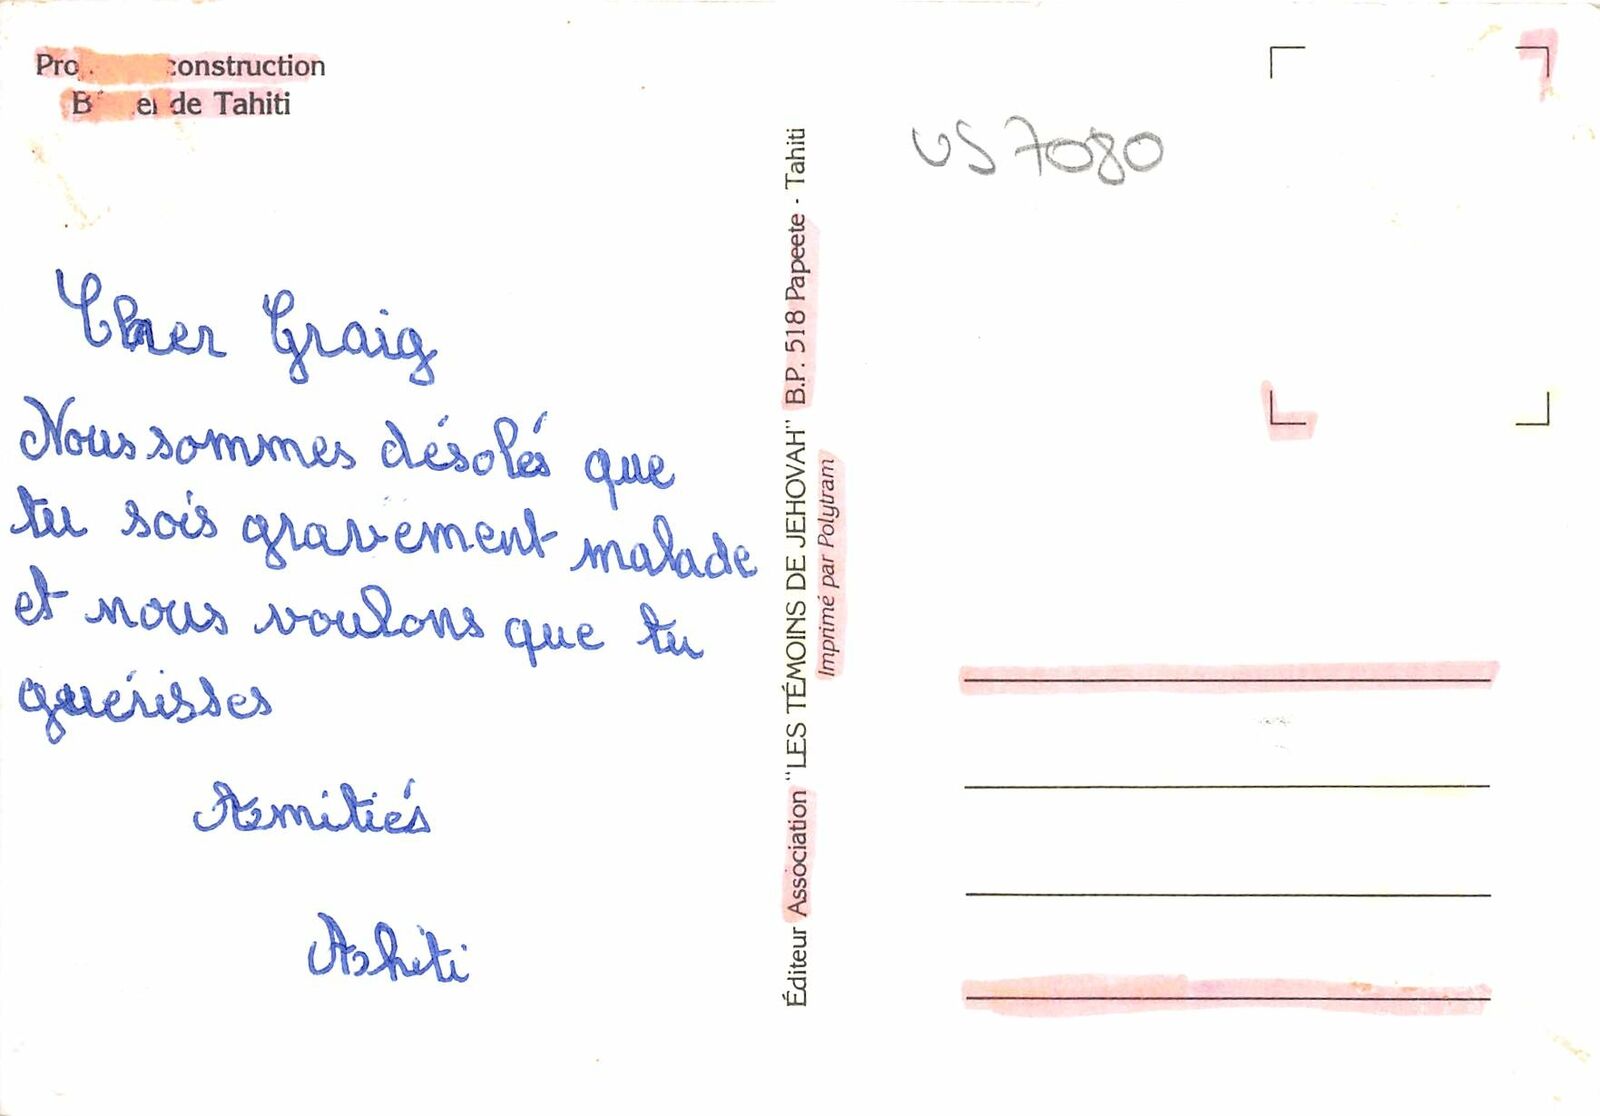 Pro construction
B el de Tahiti
US 7080
Cher Graig
Nous sommes désolés que
tu sois gravement malade
et nous voulons que tu
guérisses
Amitiés
Ashiti
Éditeur Association "LES TÉMOINS DE JEHOVAH" B.P. 518 Papeete - Tahiti
Imprimé par Polytram